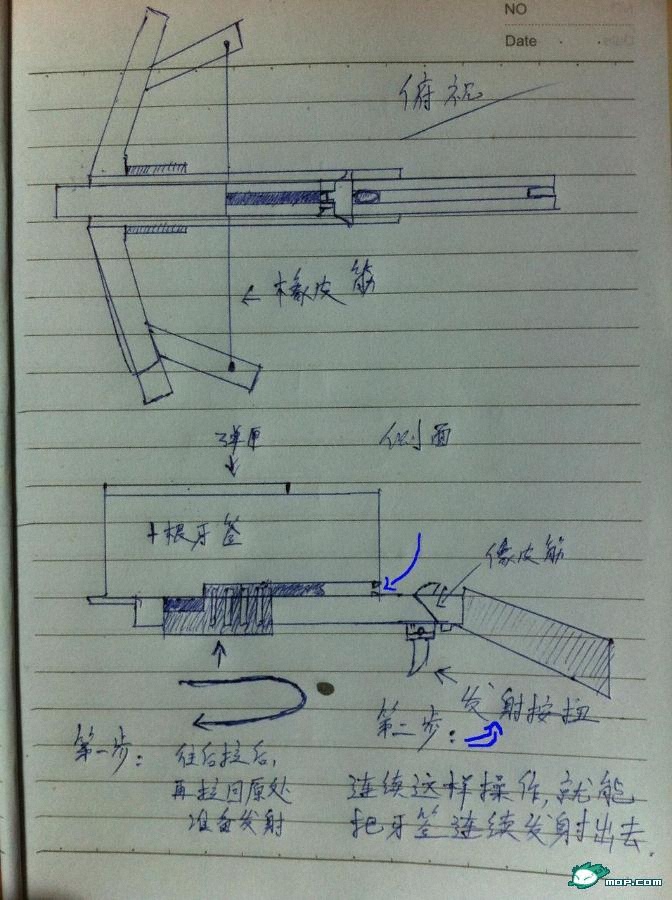 NO
Date
俯视
← 橡皮筋
弹匣
侧面
十根牙签
橡皮筋
发射按扭
第一步：
往后拉后，
再拉回原处
准备发射
第二步：
连续这样操作，就能
把牙签连续发射出去.
mop.com